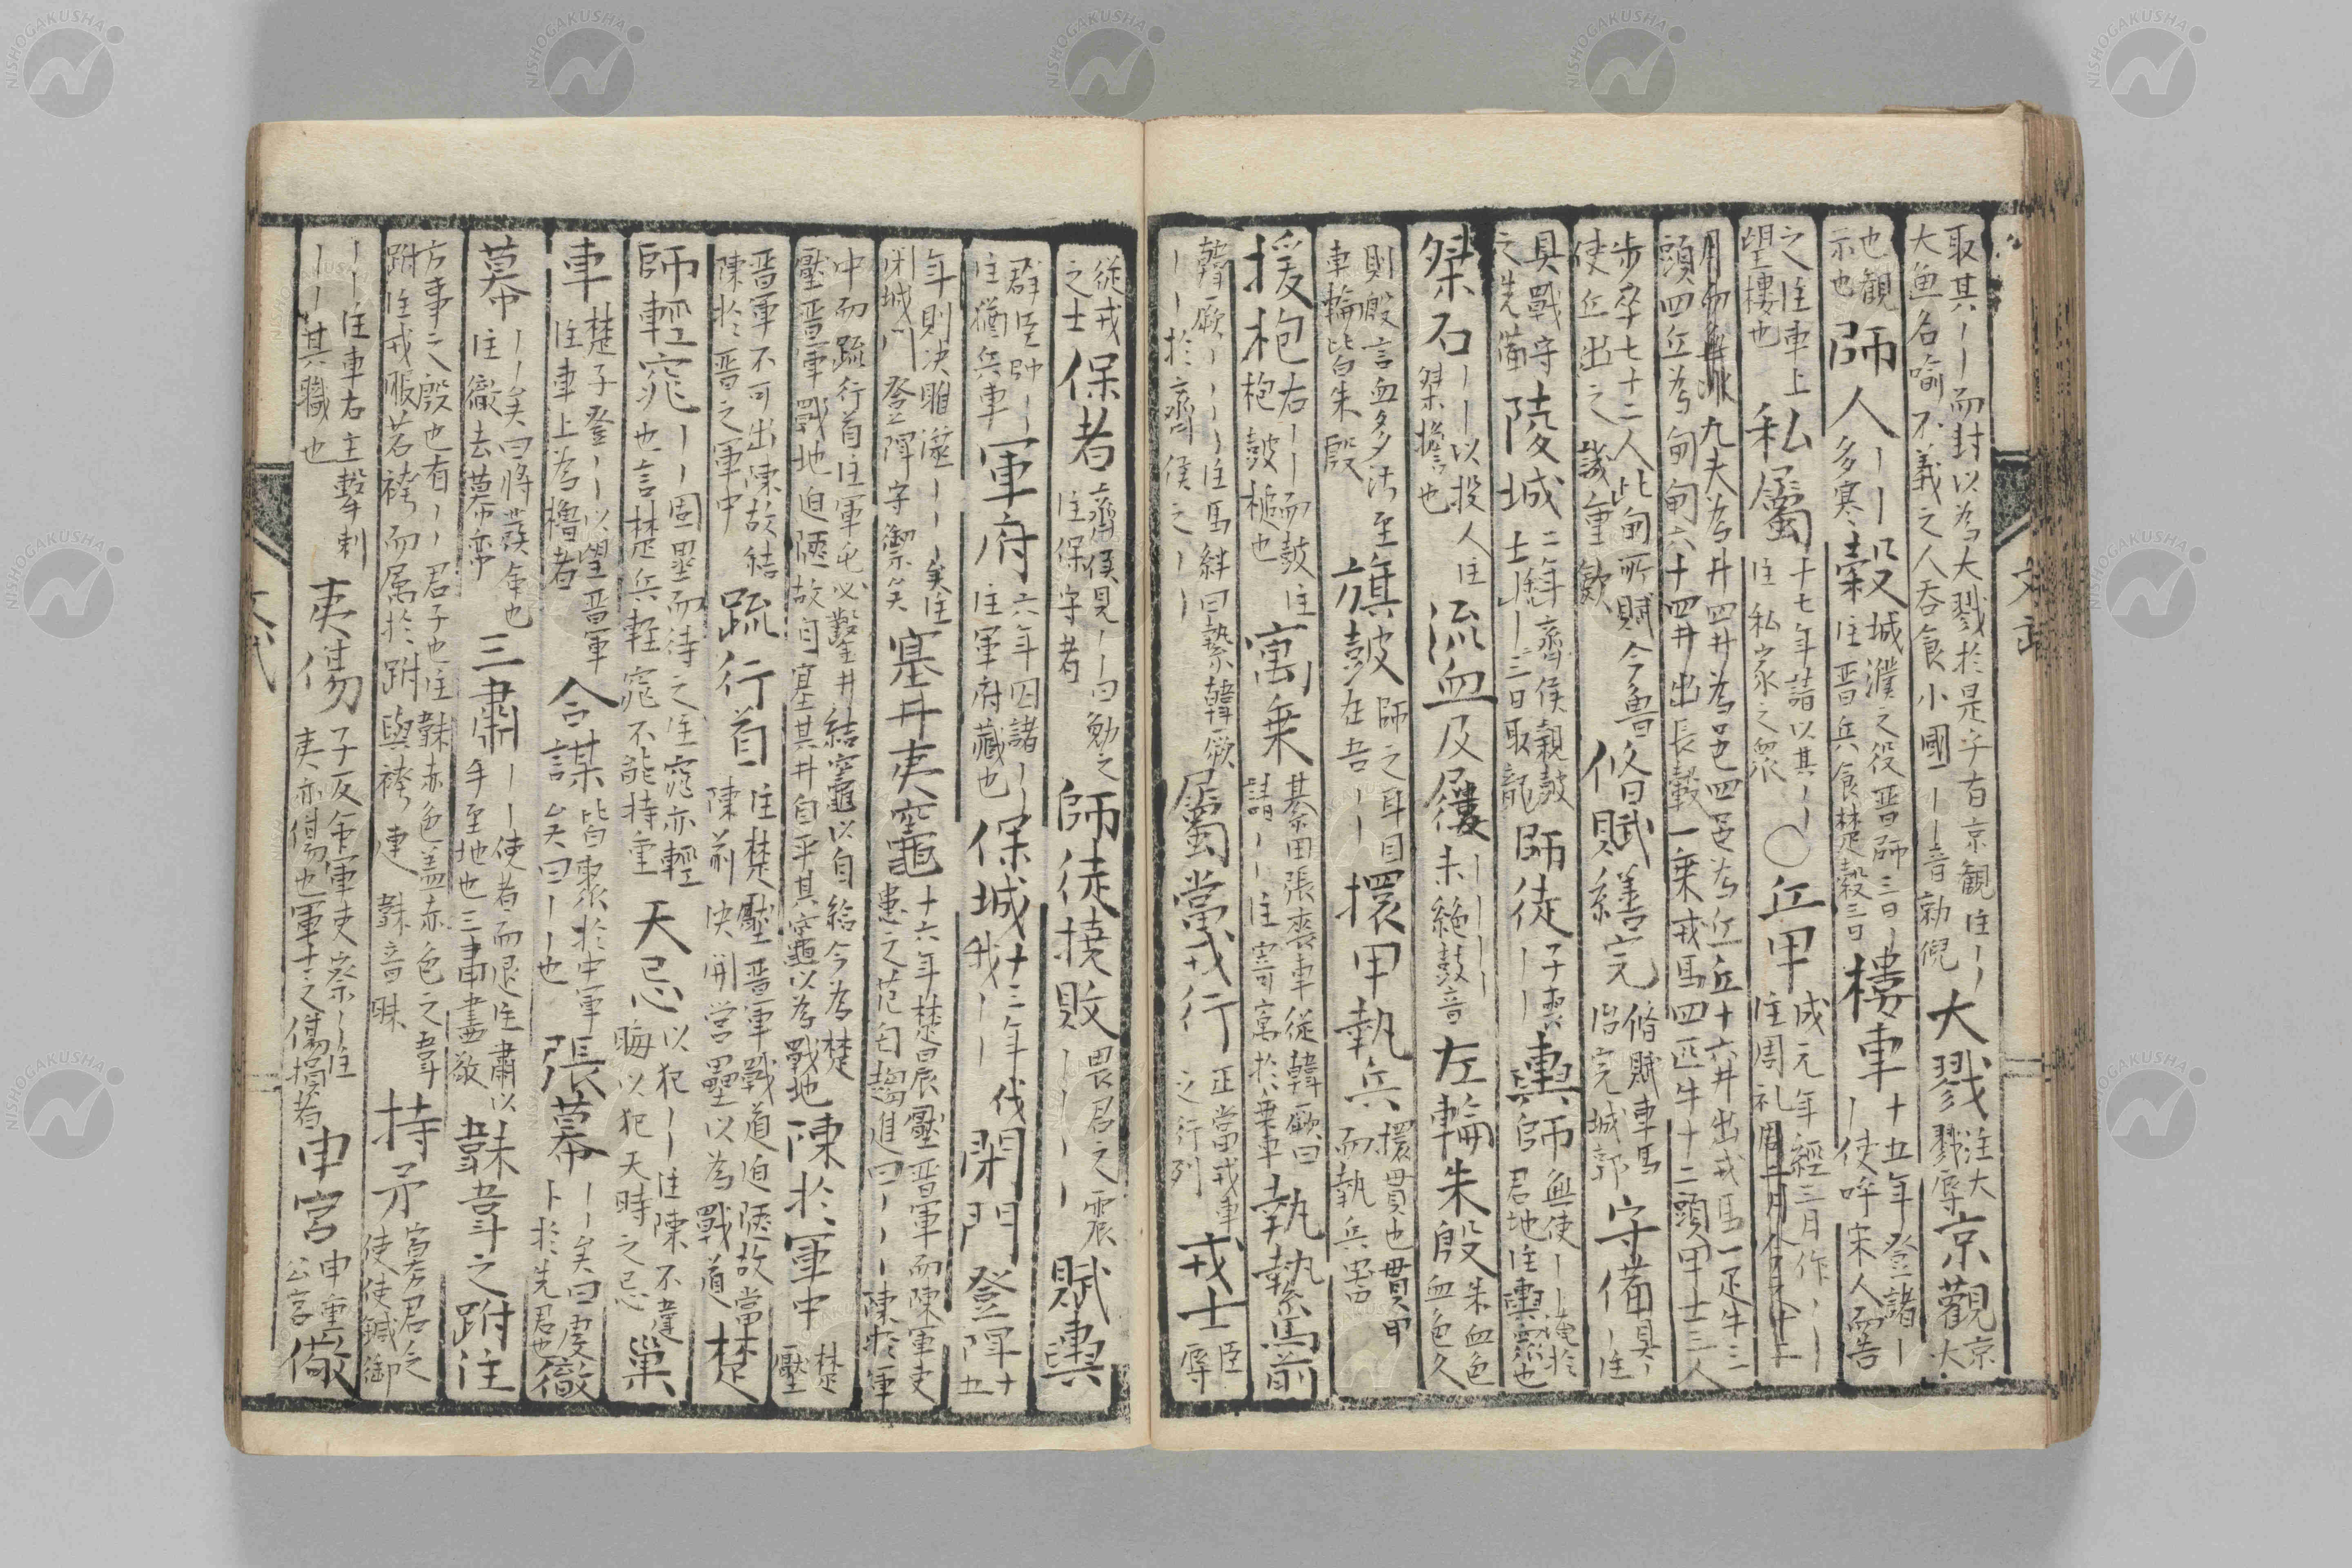 取其丨丨而封以為大戮於是乎有京觀注丨丨大魚名喻不義之人吞食小國丨丨音勍倪 大戮 注大戮辱 京觀 京大
也観示也 師人 丨丨多寒 穀 城濮之役晋師三日丨注晋兵食楚穀三日 樓車 十五年登諸丨丨使呼宋人而告
之注車上望樓也 私屬 十七年請以其丨丨注私家之衆 〇 丘甲 成元年經三月作丨丨注周礼
九夫為井四井為邑四邑為丘丘十六井出戎馬一疋牛三頭四丘為甸甸六十四井出長轂一乗戎馬四匹牛十二頭甲士三人
步卒七十二人此甸所賦今魯使丘出之譏重歛 脩賦繕完 脩賦車馬治完城郭 守備 具丨注
具戰守之先備 陵城 二年齊侯親鼓士丨丨三日取龍 師徒 丨丨 輿師 無使丨丨淹於君地注輿衆也
桀石 丨丨以投人注桀擔也 流血及屨 丨丨丨丨未絶鼓音 左輪朱殷 朱血色血色久
則殷言血多汚至車輪皆朱殷 旗鼓 師之耳目在吾丨丨 擐甲執兵 擐貫也貫甲而執兵器
援枹 右丨丨而鼓注枹鼓槌也 寓乗 綦毋張喪車従韓厥曰請丨丨注寄寓於乗車 執縶馬前
韓厥丨丨丨丨注馬絆曰縶韓厥丨丨於齊侯之丨丨 屬當戎行 正當戎車之行列 戎士 臣辱
従戎之士 保者 齊侯見丨丨曰勉之注保守者 師徒撓敗 畏君之震丨丨丨丨 賦輿
群臣帥丨丨注猶兵車 軍府 六年囚諸丨丨注軍府藏也 保城 十三年伐我丨丨 閉門登陴 十五
年則决睢澨丨丨丨丨矣注閉城門登陴守禦矣 塞井夷竈 十六年楚晨壓晋軍而陳軍吏患之范匄趨進曰丨丨丨丨陳於軍
中而疏行首注軍屯必鑿井結竈以自給今為楚壓晋軍戰地迫陋故自塞其井自平其竈以為戰地 陳於軍中 楚壓
晋軍不可出陳故結陳於晋之軍中 疏行首 注楚壓晋軍戰道迫陋故當陳前决開営壘以為戰道 楚
師輕窕 丨丨固壘而待之注窕亦輕也言楚兵輕窕不能持重 天忌 以犯丨丨注陳不違晦以犯天時之忌 巢
車 楚子登丨丨以望晋軍注車上為櫓者 合謀 皆聚於中軍矣曰丨丨也 張幕 丨丨矣曰虔卜於先君也 徹
幕 丨丨矣曰將發命也注徹去幕帟 三肅 丨丨使者而退注肅以手至地也三肅盡敬 韎韋之跗注
方事之殷也有丨丨君子也注韎赤色盖赤色之韋跗注戎服若袴而属於跗與袴連韎音昧 持矛 寡君之使使鍼御
丨丨注車右主擊刺丨丨其職也 夷傷 子反命軍吏察丨丨注夷亦傷也軍士之傷損者 申宮儆 申重公宮